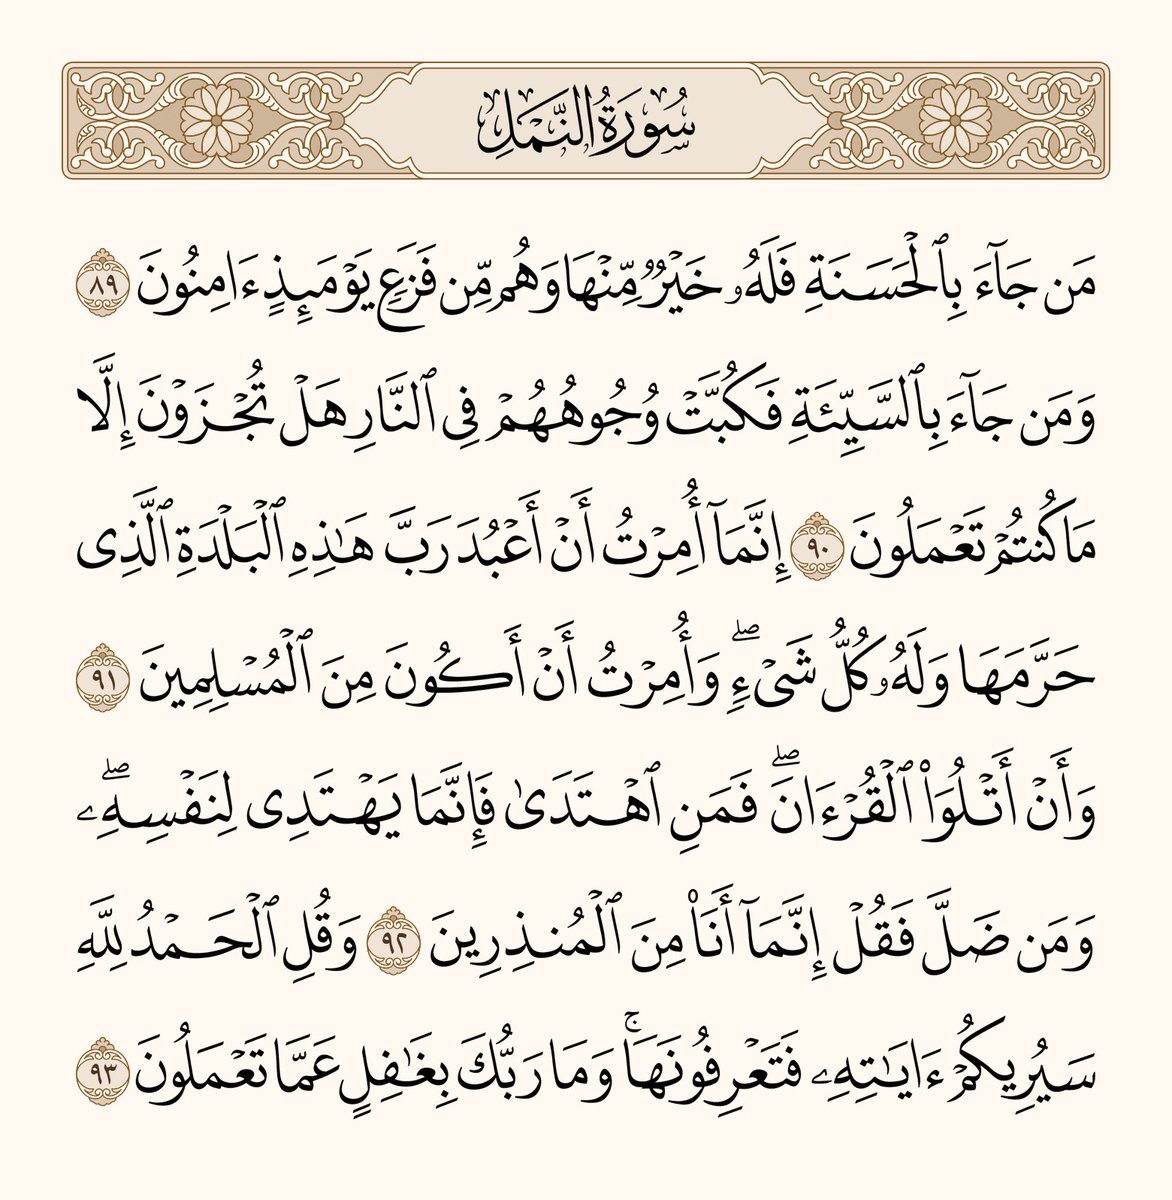 سُورَةُ النَّمْلِ
مَن جَآءَ بِٱلْحَسَنَةِ فَلَهُۥ خَيْرٌۭ مِّنْهَا وَهُم مِّن فَزَعٍۢ يَوْمَئِذٍ ءَامِنُونَ ٨٩
وَمَن جَآءَ بِٱلسَّيِّئَةِ فَكُبَّتْ وُجُوهُهُمْ فِى ٱلنَّارِ هَلْ تُجْزَوْنَ إِلَّا
مَا كُنتُمْ تَعْمَلُونَ ٩٠ إِنَّمَآ أُمِرْتُ أَنْ أَعْبُدَ رَبَّ هَٰذِهِ ٱلْبَلْدَةِ ٱلَّذِى
حَرَّمَهَا وَلَهُۥ كُلُّ شَىْءٍۢ ۖ وَأُمِرْتُ أَنْ أَكُونَ مِنَ ٱلْمُسْلِمِينَ ٩١
وَأَنْ أَتْلُوَا۟ ٱلْقُرْءَانَ ۖ فَمَنِ ٱهْتَدَىٰ فَإِنَّمَا يَهْتَدِى لِنَفْسِهِۦ ۖ
وَمَن ضَلَّ فَقُلْ إِنَّمَآ أَنَا۠ مِنَ ٱلْمُنذِرِينَ ٩٢ وَقُلِ ٱلْحَمْدُ لِلَّهِ
سَيُرِيكُمْ ءَايَٰتِهِۦ فَتَعْرِفُونَهَا ۚ وَمَا رَبُّكَ بِغَٰفِلٍ عَمَّا تَعْمَلُونَ ٩٣